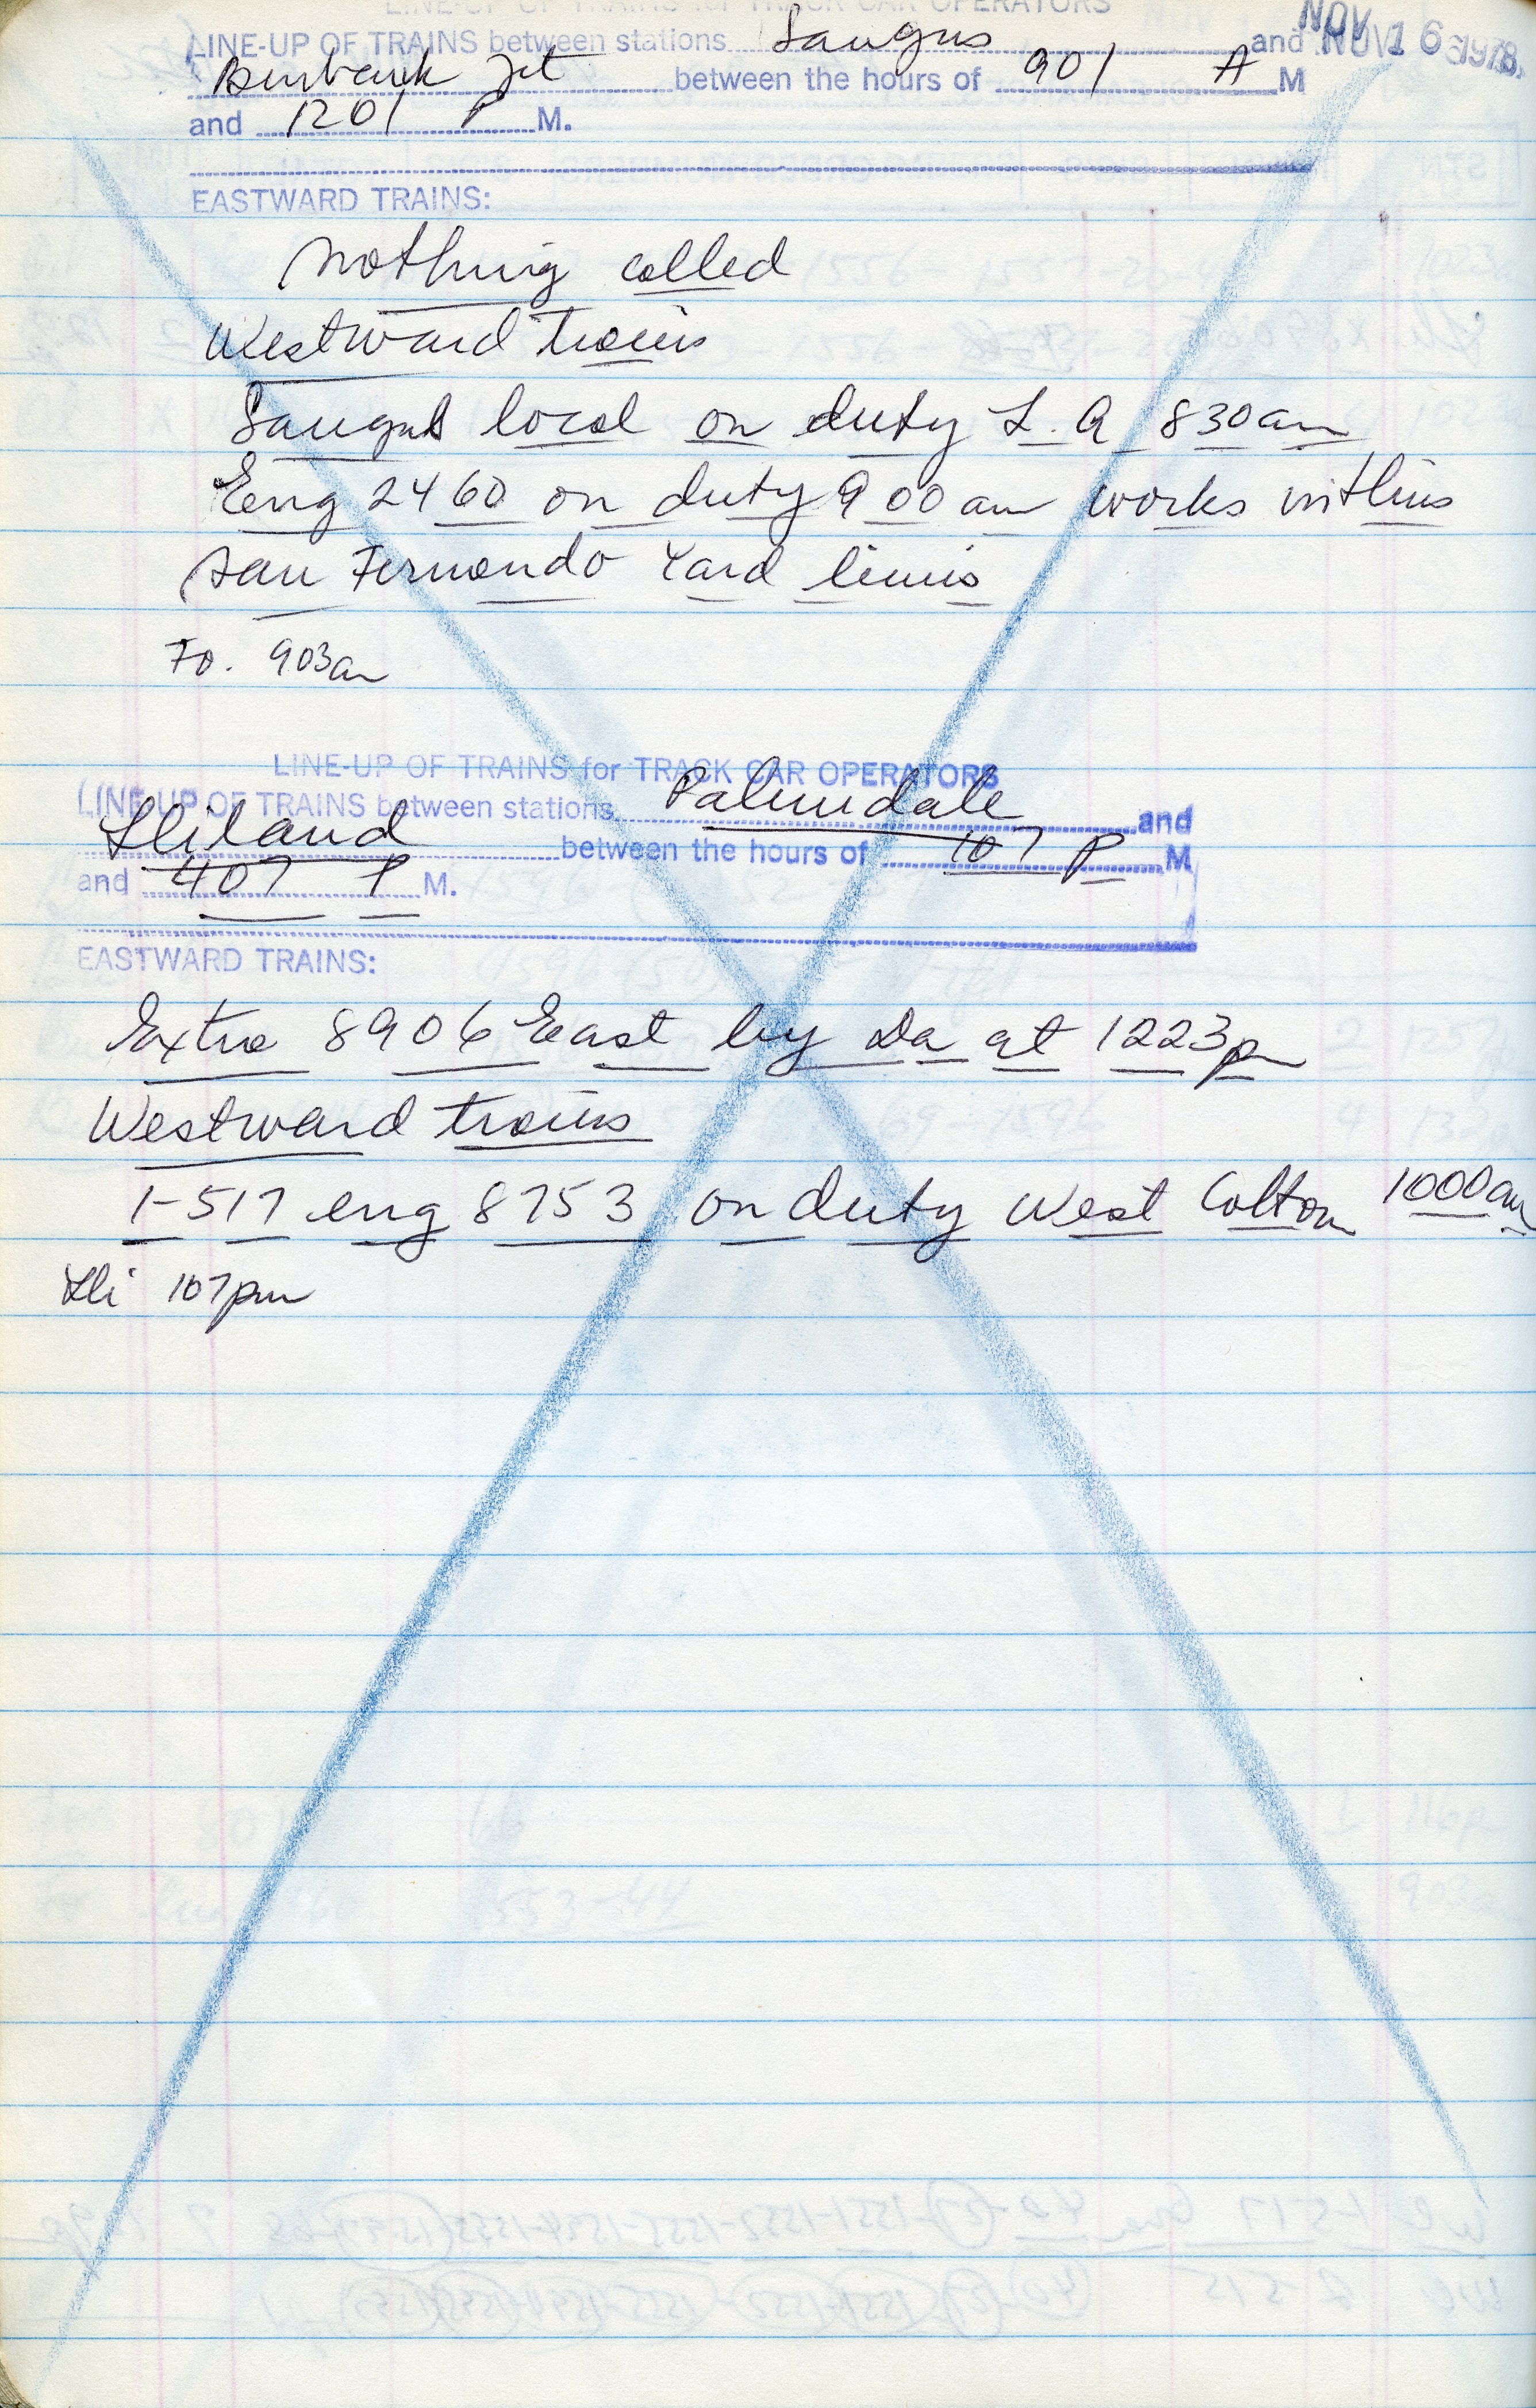 LINE-UP OF TRAINS for TRACK CAR OPERATORS
NOV
LINE-UP OF TRAINS between stations Saugus and NOV 16 1978
Burbank Jct between the hours of 901 A M
and 1201 P M.
EASTWARD TRAINS:
nothing called
Westward trains
Saugus local on duty L.A 830am
Eng 2460 on duty 900am works within
San Fernando Yard limis
Fo. 903am
LINE-UP OF TRAINS for TRACK CAR OPERATORS
LINE-UP OF TRAINS between stations Palmdale and
Hiland between the hours of 107 P M
and 407 P M.
EASTWARD TRAINS:
Extra 8906 East by Da at 1223pm
Westward trains
1-517 eng 8753 on duty West Colton 1000am
Hi 107pm